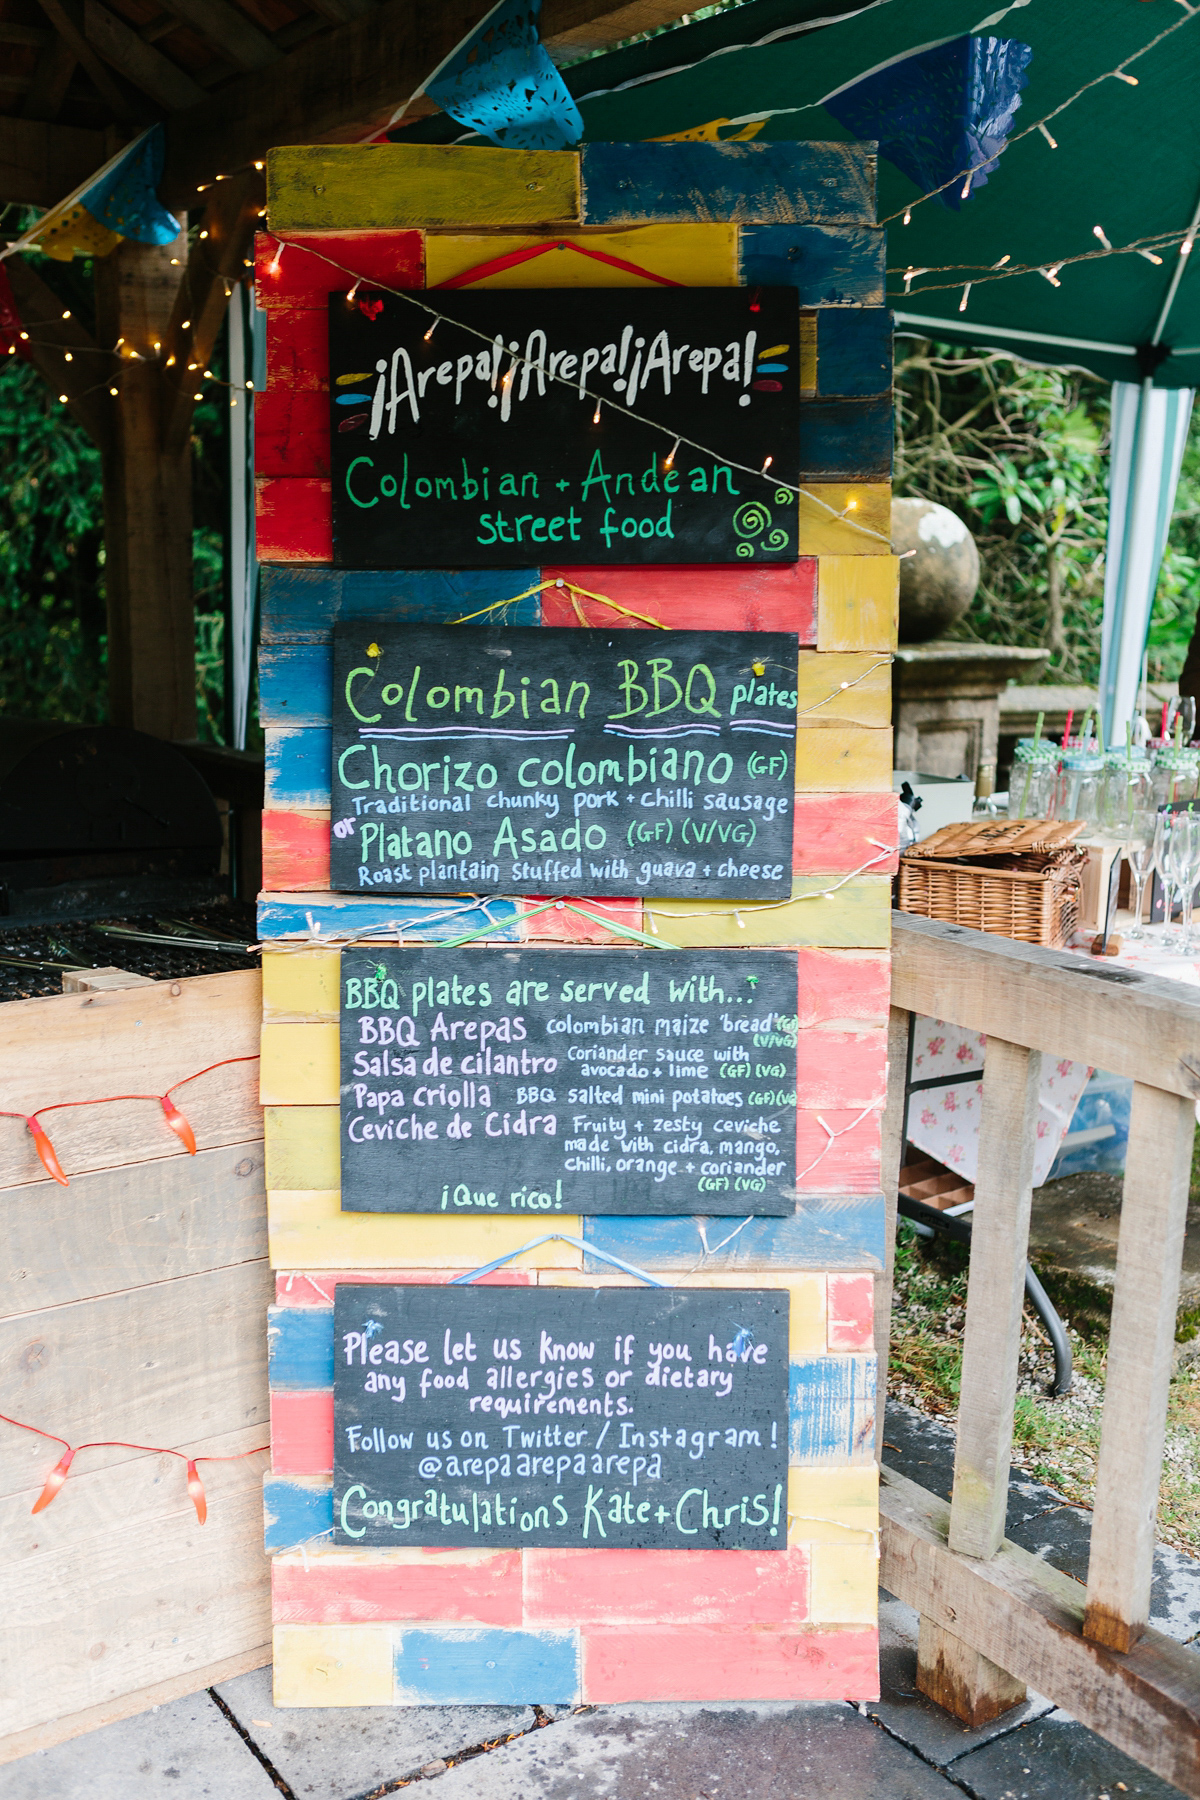 ¡Arepa!¡Arepa!¡Arepa!
Colombian + Andean
street food
Colombian BBQ plates
Chorizo colombiano (GF)
Traditional chunky pork + chilli sausage
or Platano Asado (GF) (V/VG)
Roast plantain stuffed with guava + cheese
BBQ plates are served with...
BBQ Arepas colombian maize 'bread' (GF)
(V/VG)
Salsa de cilantro Coriander sauce with
avocado + lime (GF) (VG)
Papa criolla BBQ salted mini potatoes (GF) (VG
Ceviche de Cidra Fruity + zesty ceviche
made with cidra, mango,
chilli, orange + coriander
(GF) (VG)
¡Que rico!
Please let us know if you have
any food allergies or dietary
requirements.
Follow us on Twitter / Instagram!
@arepaarepaarepa
Congratulations Kate + Chris!